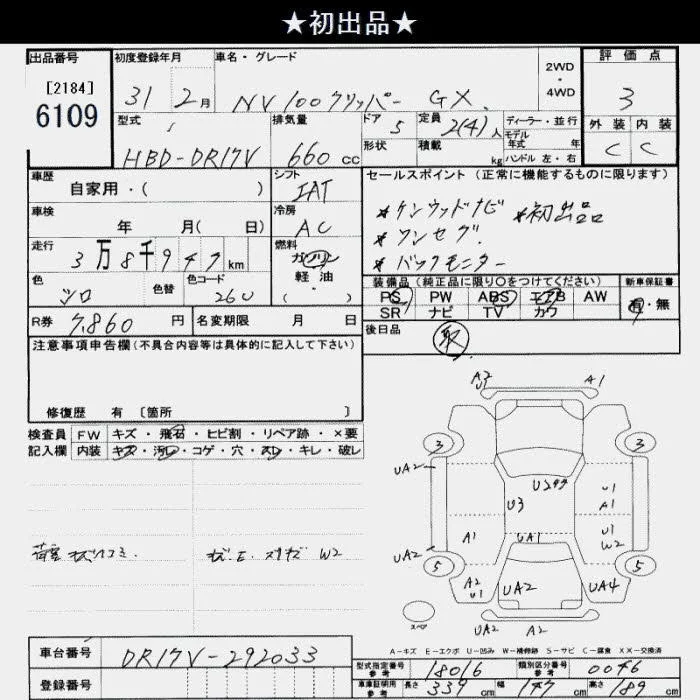 ★初出品★
出品番号 初度登録年月 車名・グレード 2WD・4WD 評価点
[2184]
6109
31 2月 NV100クリッパー GX 3
型式 排気量 ドア 5 定員 2(4)人 ディーラー・並行 外装 内装
HBD-DR17V 660cc 形状 積載 kg モデル年式 年 ハンドル 左・右 C C
車歴 シフト セールスポイント(正常に機能するものに限ります)
自家用・( ) IAT
＊ケンウッドナビ ＊初出品
車検 冷房
年 月( 日) AC
＊ワンセグ
走行 燃料
3万8千947km ガソリン 軽油・( )
＊バックモニター
色 色替 色コード 装備品(純正品に限り○をつけてください) 新車保証書
シロ 26U PS PW ABS エアB AW 有・無
SR ナビ TV カワ
R券 7,860円 名変期限 月 日 後日品 取
注意事項申告欄(不具合内容等は具体的に記入して下さい)
修復歴 有 〔箇所 〕
検査員 FW キズ・飛石・ヒビ割・リペア跡・×要
記入欄 内装 キズ・汚レ・コゲ・穴・スレ・キレ・破レ
A2 A1
3 3
UA2
U3 U1
A1
A1 UA1 U1
W2
UA2
5 5
A2
U1 UA2 UA4
スペア UA2 A2
荷室キズハコミ. キズ.E. メクキズ W2
A－キズ E－エクボ U－凹み W－補修跡 S－サビ C－腐食 XX－交換済
車台番号 DR17V-292033
型式指定番号 参考 18016 類別区分番号 参考 0046
登録番号 車庫証明用 参考 長さ 339cm 幅 147cm 高さ 189cm